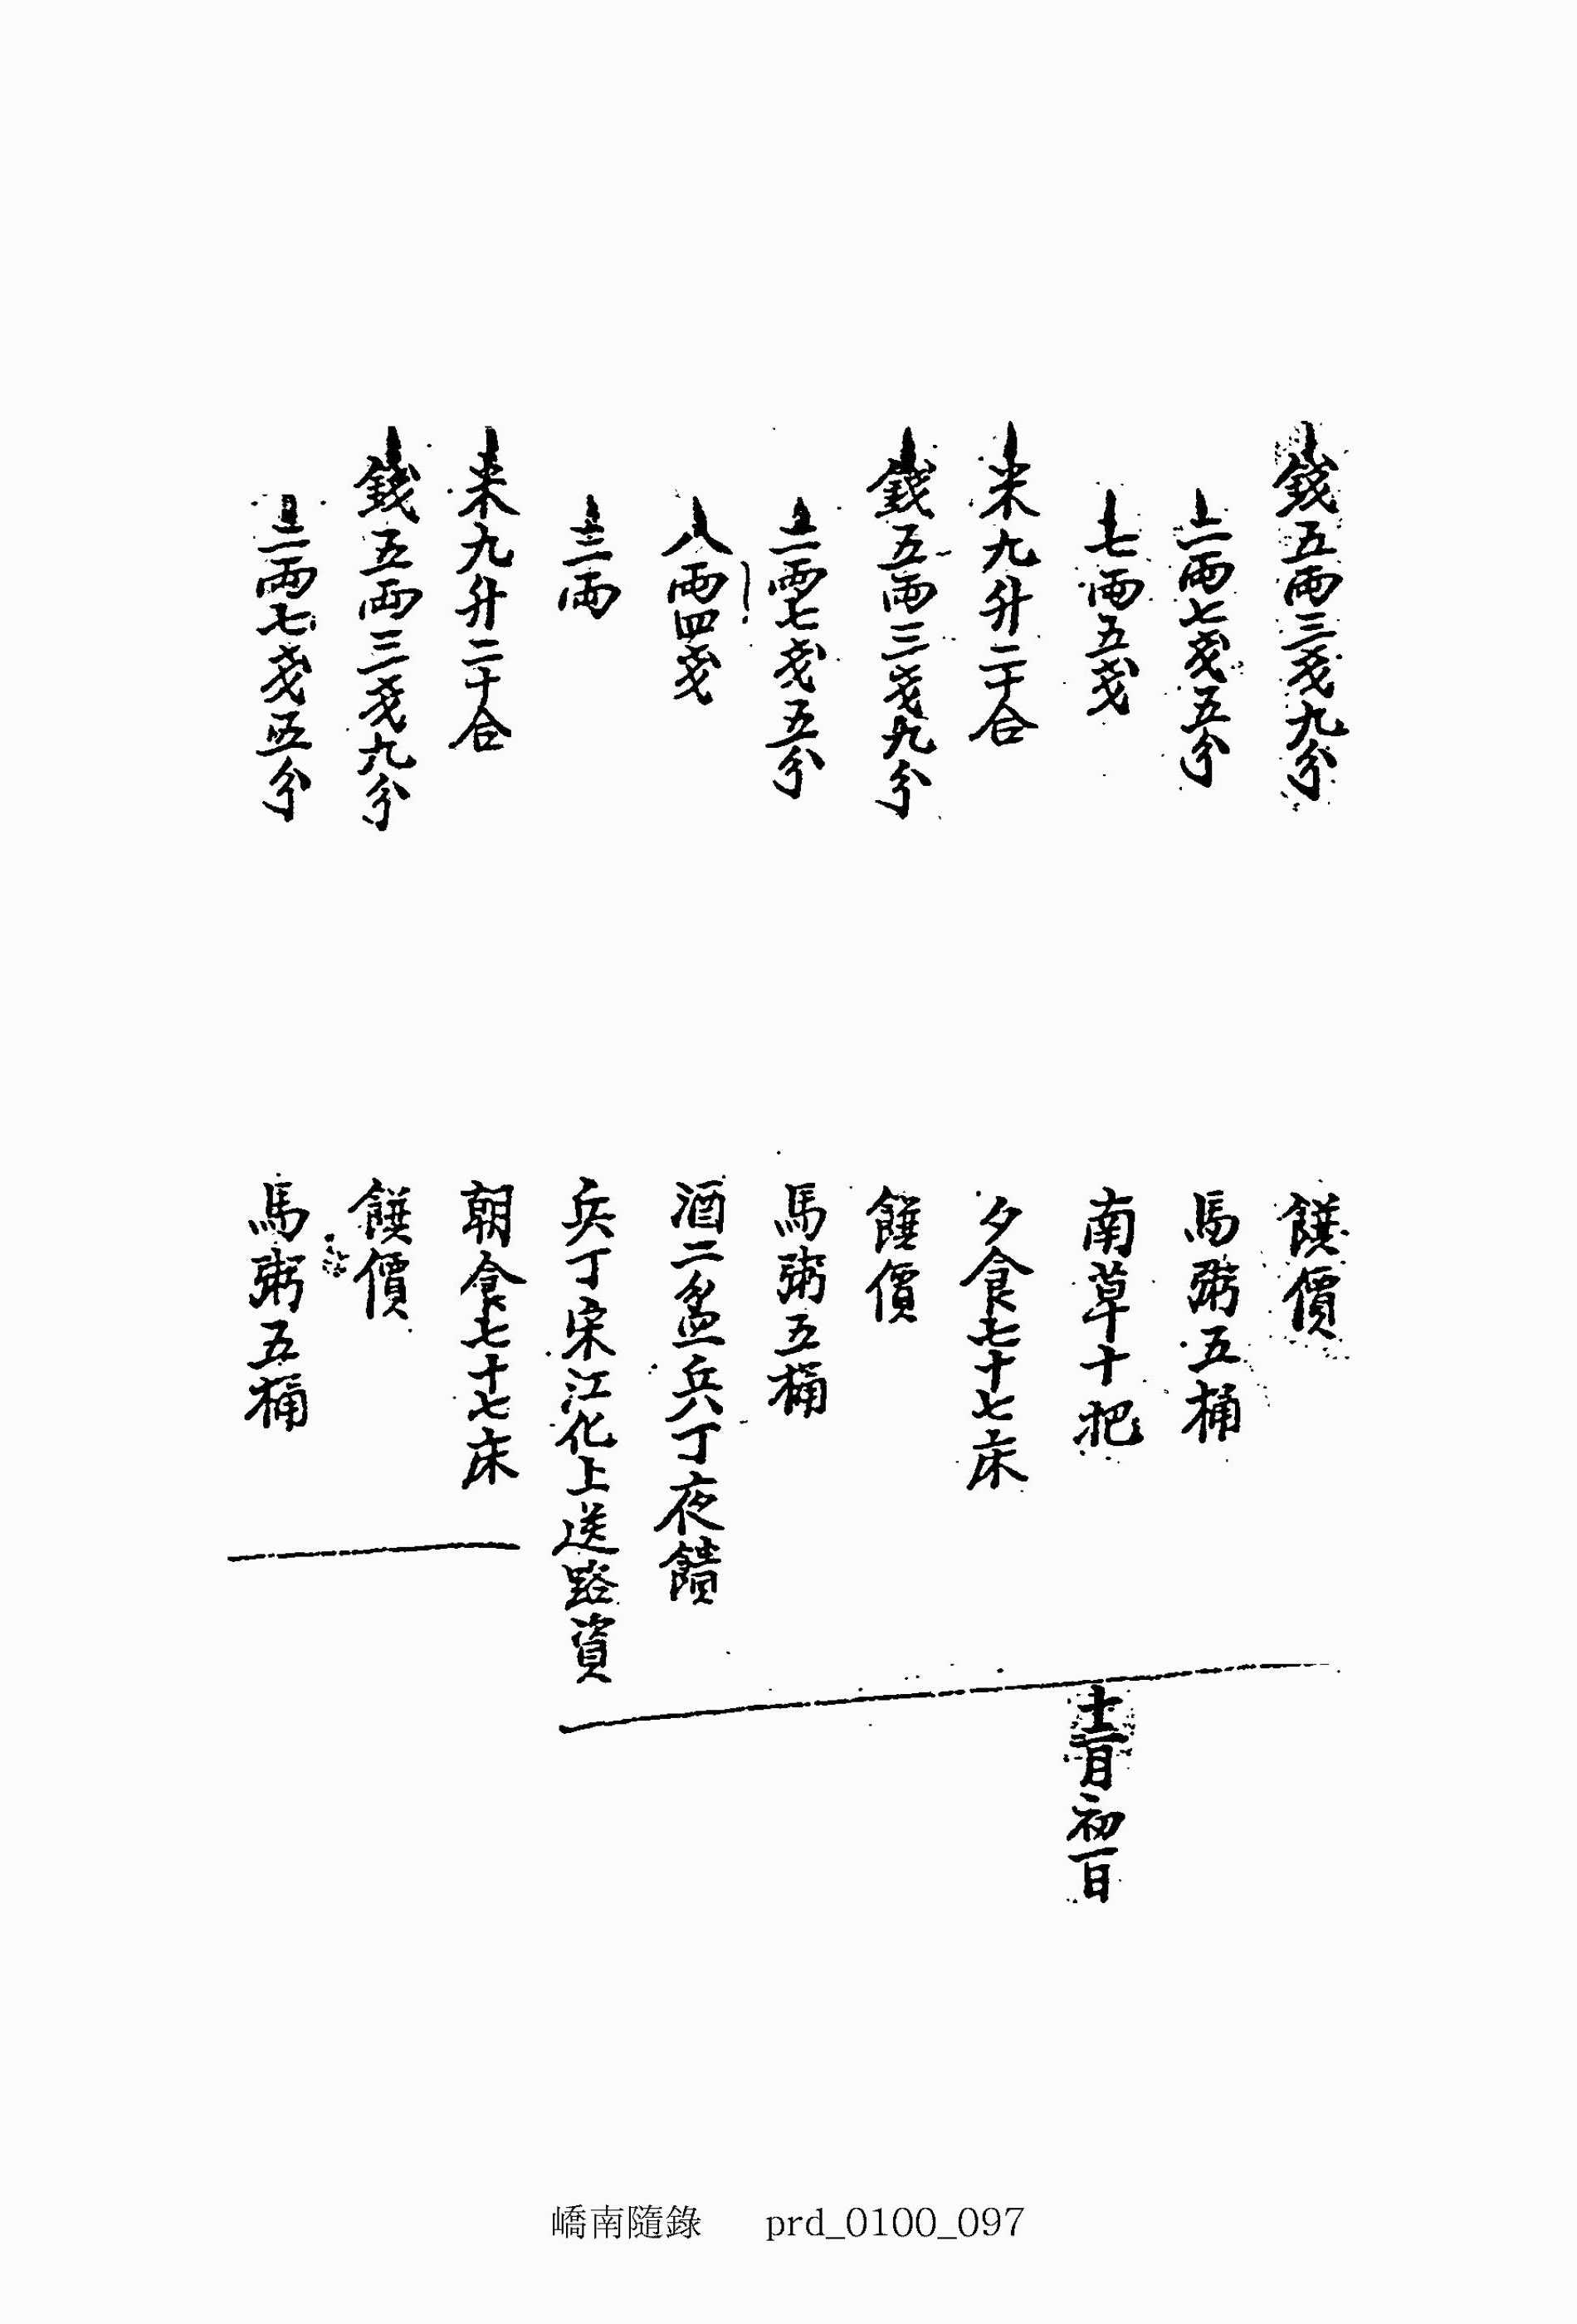 錢五兩三戔九分　饌價
二兩七戔五分　馬粥五桶
七兩五戔　南草十把
米九升二十合　夕食七十七床
錢五兩三戔九分　饌價
二兩七戔五分　馬粥五桶
八兩四戔　酒二盆兵丁夜饋
三兩　兵丁宋江化上送路資
十二月初一日
米九升二十合　朝食七十七床
錢五兩三戔九分　饌價
二兩七戔五分　馬粥五桶
嶠南隨錄　prd_0100_097